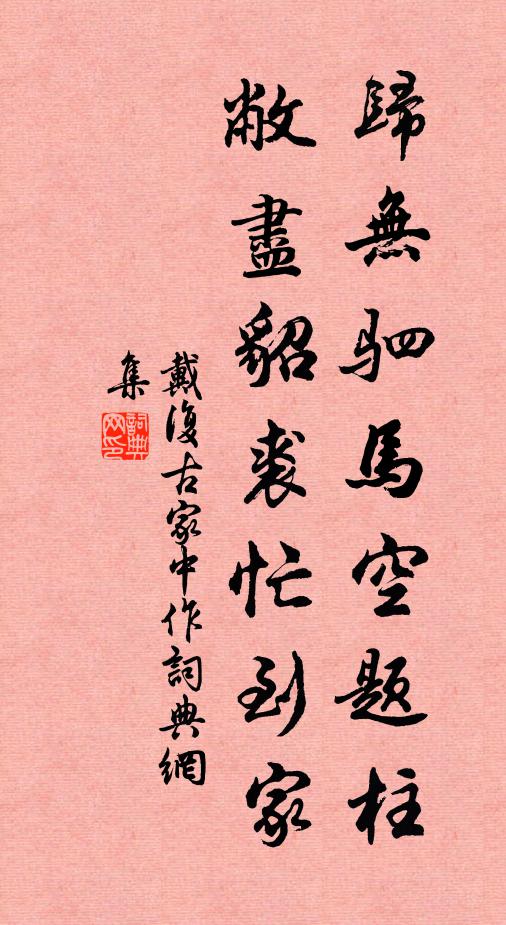 歸無驷馬空题柱
敝盡貂裘忙到家
戴復古家中作詞典網
集
詞典网印